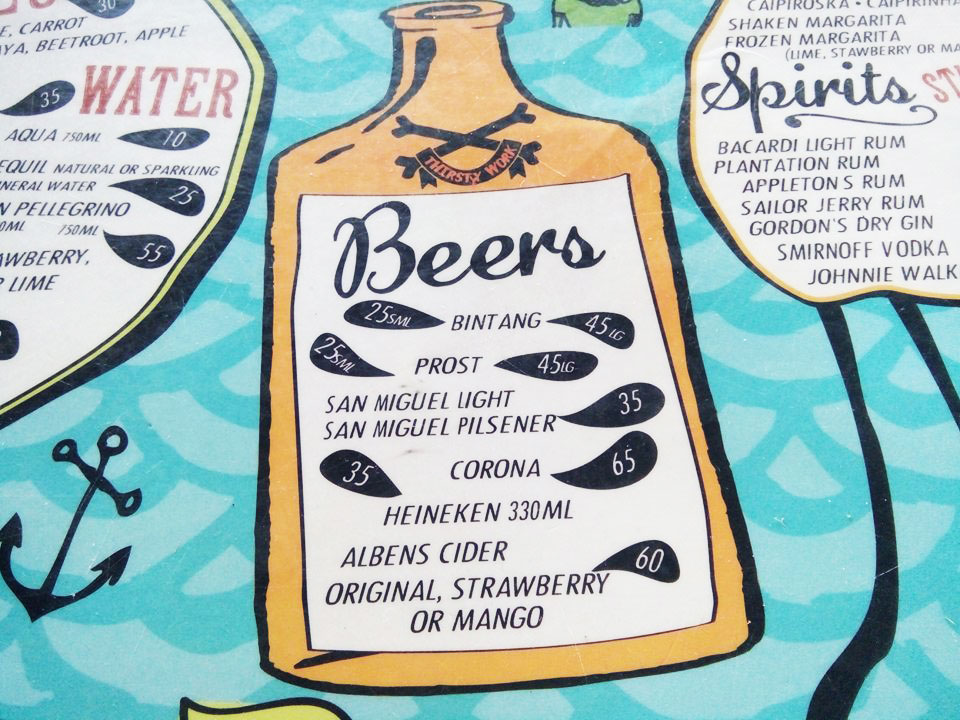 30
E, CARROT
AYA, BEETROOT, APPLE
35 WATER
AQUA 750ML 10
EQUIL NATURAL OR SPARKLING
NERAL WATER 25
N PELLEGRINO
750ML
55
AWBERRY,
LIME
THIRSTY WORK
Beers
25SML BINTANG 45LG
25SML PROST 45LG
SAN MIGUEL LIGHT
SAN MIGUEL PILSENER 35
35 CORONA 65
HEINEKEN 330ML
ALBENS CIDER
ORIGINAL, STRAWBERRY 60
OR MANGO
CAIPIROSKA • CAIPIRINH
SHAKEN MARGARITA
FROZEN MARGARITA
(LIME, STAWBERRY OR MA
Spirits ST
BACARDI LIGHT RUM
PLANTATION RUM
APPLETONS RUM
SAILOR JERRY RUM
GORDON'S DRY GIN
SMIRNOFF VODKA
JOHNNIE WALK